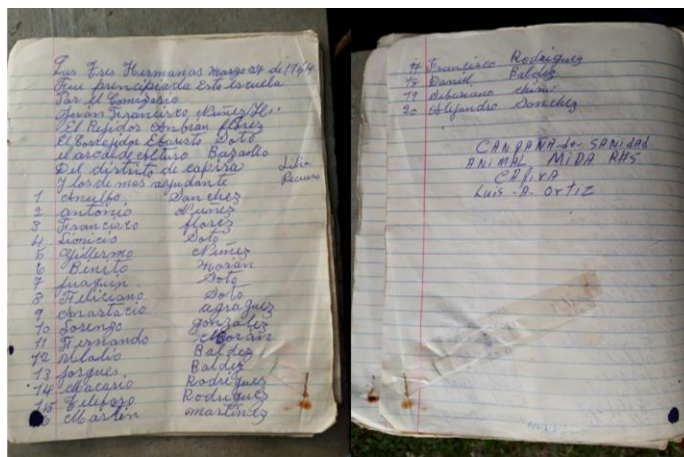 Las Tres Hermanas marzo 27 de 1964
Fue principiada Esta escuela
Por el Comisario
Juan Francisco Nuñez H.
El Rejidor Anbran flores
El Correjidor Ebaristo Soto
Del distrito de capira
Y los de mos ayudante
Lilia
1 Anulfo Sanchez
2 antonio Nuñez
3 Francisco flores
4 Dionicio Soto
5 Gillermo Nuñez
6 Benito Moran
7 Juaquin Soto
8 Feliciano Soto
9 anastacio agraguez
10 Lorenzo gonzalez
11 Fernando Moran
12 Baldez
13 Jorgues Baldez
14 Macario Rodriguez
15 Telefozo Rodriguez
16 Martin martinez
17 Francisco Rodriguez
18 Daniel Baldez
19 Bibiano
20 Alejandro Sanchez
CANPAÑA-de-SANIDAD
ANIMAL MIDA RHS
CAPIRA
Luis-A. ORTIZ